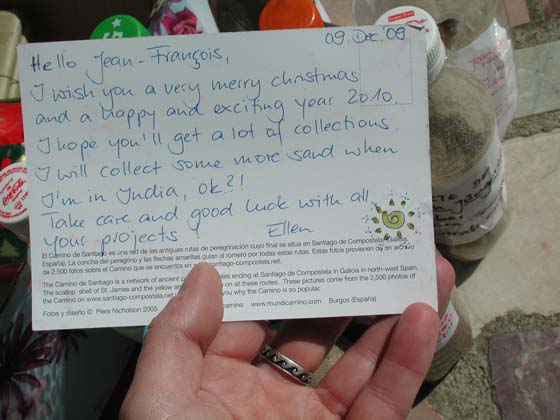 09. Dec. '09.
Hello Jean-François,
I wish you a very merry christmas
and a happy and exciting year 2010.
I hope you'll get a lot of collections.
I will collect some more sand when
I'm in India, ok?!
Take care and good luck with all
your projects!
Ellen
El Camino de Santiago es una red de las antiguas rutas de peregrinación cuyo final se situa en Santiago de Compostela, Galicia, España.
La concha del peregrino y las flechas amarillas guian al romero por todas estas rutas. Estas fotos provienen de un archivo
de 2.500 fotos sobre el Camino que se encuentra en santiago-compostela.net.
The Camino de Santiago is a network of ancient ending at Santiago de Compostela in Galicia in north-west Spain.
The scallop shell of St. James and the yellow on all of these routes. These pictures come from the 2,500 photos of
the Camino on www.santiago-compostela.net you why the Camino is so popular.
Fotos y diseño © Piers Nicholson 2005 camino www.mundicamino.com Burgos (España)